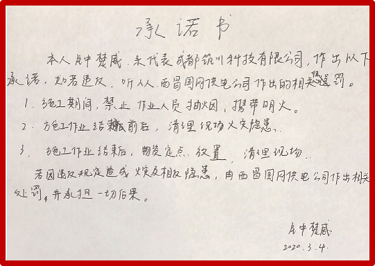 承诺书
本人卢中楚威,来代表成都筑川科技有限公司,作出以下
承诺,如若违反,听从西昌国网供电公司作出的相关惩罚。
1、施工期间,禁止作业人员抽烟,携带明火。
2、施工作业结束前后,清理现场火灾隐患。
3、施工作业结束后,定点放置,清理现场。
若因违反规定造成火灾相反隐患,由西昌国网供电公司作出相关
处罚,并承担一切后果。
中楚威
2020.3.4.